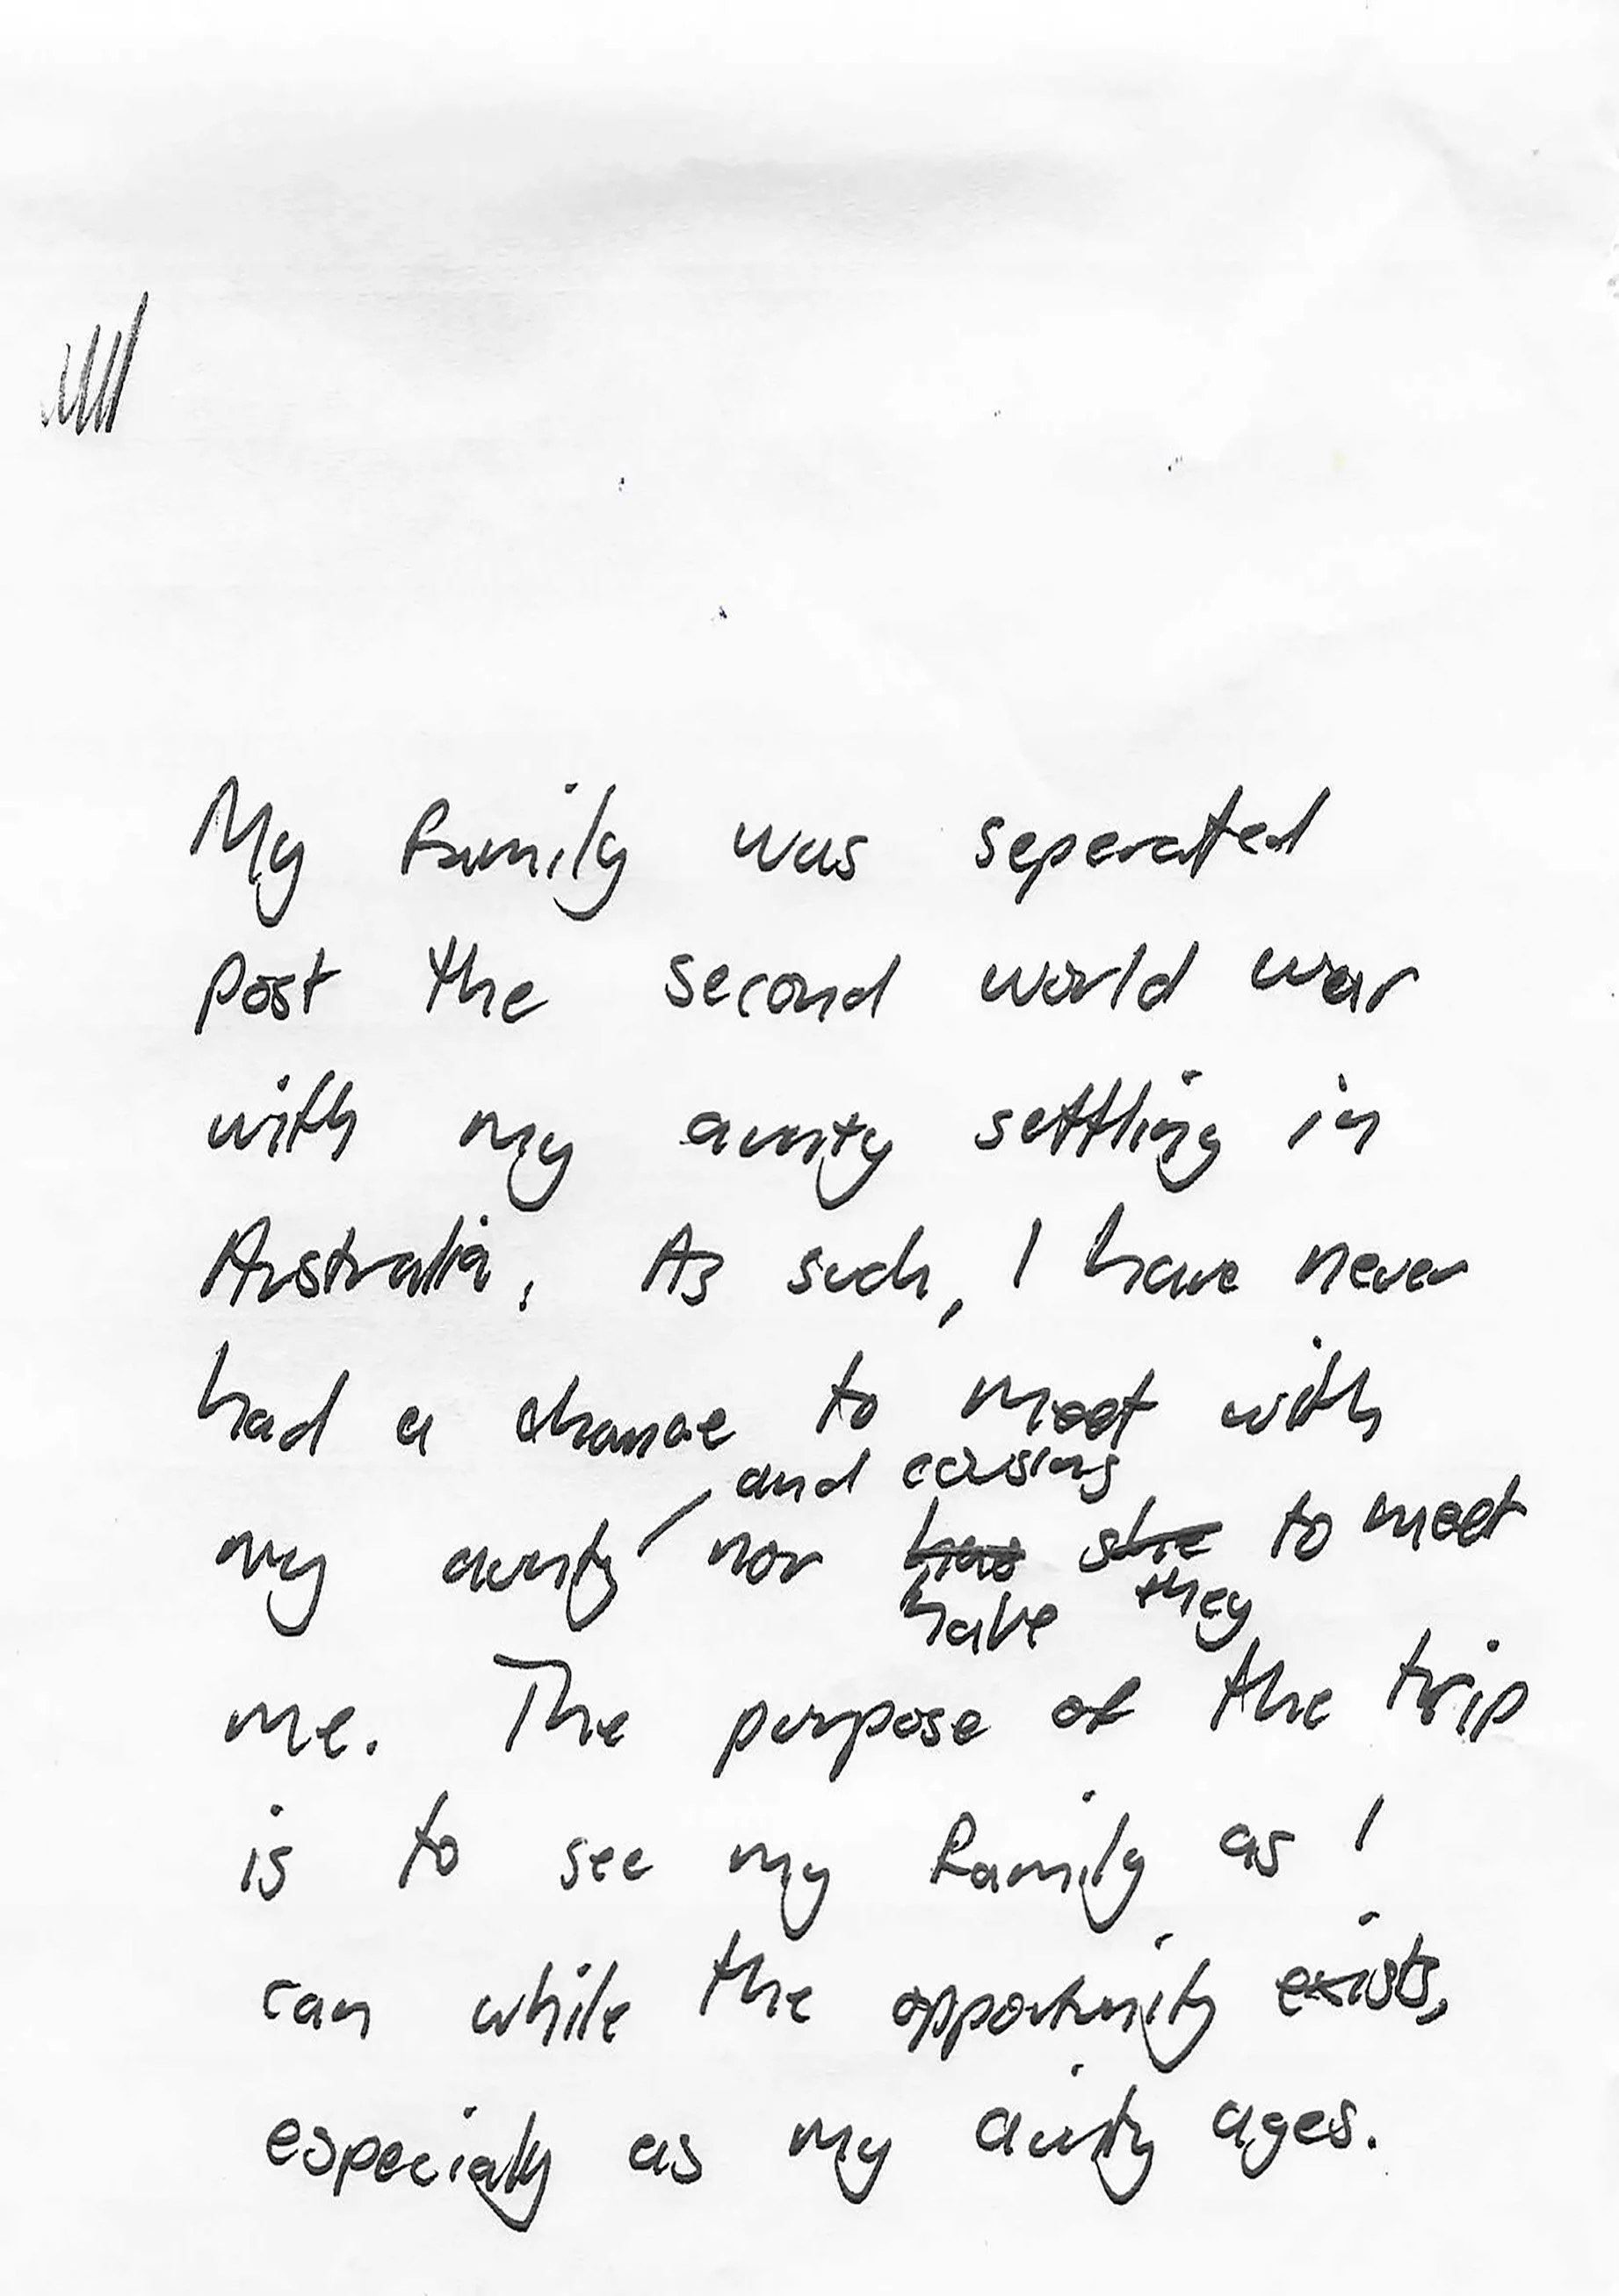 My family was seperated
post the second world war
with my aunty settling in
Australia. As such, I have never
had a chance to meet with
and cousins
my aunty nor has she to meet
have they
me. The purpose of the trip
is to see my family as I
can while the opportunity exists,
especially as my aunty ages.